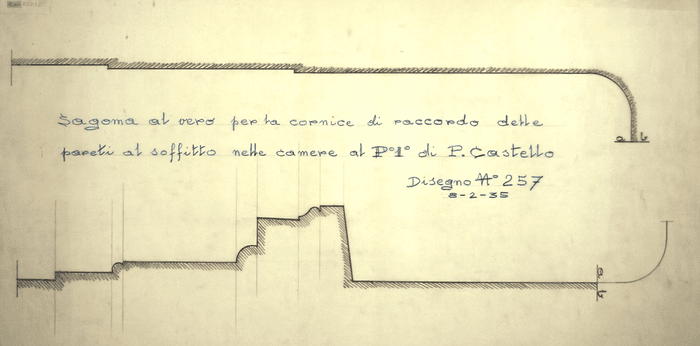 Sagoma al vero per la cornice di raccordo delle
pareti al soffitto nelle camere al P°1° di P. Castello
Disegno N° 257
8-2-35
a b
a
b